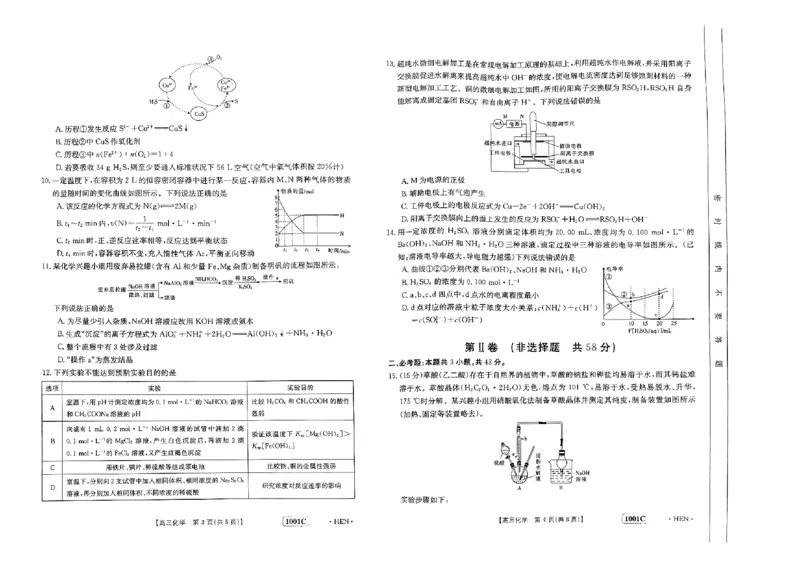 ② O₂
Cu²⁺
Fe²⁺
Cu²⁺
Fe³⁺
H₂S
①
③
S
CuS
A. 历程①发生反应 S²⁻+Cu²⁺══CuS↓
B. 历程③中 CuS 作氧化剂
C. 历程②中 n(Fe²⁺)∶n(O₂)=1∶4
D. 若要吸收 34 g H₂S,则至少要通入标准状况下 56 L 空气(空气中氧气体积按 20%计)
10. 一定温度下,在容积为 2 L 的恒容密闭容器中进行某一反应,容器内 M、N 两种气体的物质
的量随时间的变化曲线如图所示。下列说法正确的是
A. 该反应的化学方程式为 N(g)⇌2M(g)
B. t₁~t₂ min 内,v(N)=1/(t₂−t₁) mol·L⁻¹·min⁻¹
C. t₂ min 时,正、逆反应速率相等,反应达到平衡状态
D. t₃ min 时,容器容积不变,充入惰性气体 Ar,平衡正向移动
物质的量/mol
8
7
6
5
4
3
2
1
0
M
N
t₁ t₂ t₃ t₄ 时间/min
11. 某化学兴趣小组用废弃易拉罐(含有 Al 和少量 Fe、Mg 杂质)制备明矾的流程如图所示:
废弃易拉罐 NaOH 溶液 微热、过滤 NaAlO₂ 溶液 NH₄HCO₃ 沉淀 稀 H₂SO₄ K₂SO₄ 操作 a 明矾
滤渣
下列说法正确的是
A. 为尽量少引入杂质,NaOH 溶液应改用 KOH 溶液或氨水
B. 生成“沉淀”的离子方程式为 AlO₂⁻+NH₄⁺+2H₂O══Al(OH)₃↓+NH₃·H₂O
C. 整个流程中有 3 处涉及过滤
D. “操作 a”为蒸发结晶
12. 下列实验不能达到预期实验目的的是
选项 实验 实验目的
A 室温下,用 pH 计测定浓度均为 0.1 mol·L⁻¹的 NaHCO₃ 溶液和 CH₃COONa 溶液的 pH 比较 H₂CO₃ 和 CH₃COOH 的酸性强弱
B 向盛有 1 mL 0.2 mol·L⁻¹ NaOH 溶液的试管中滴加 2 滴 0.1 mol·L⁻¹的 MgCl₂ 溶液,产生白色沉淀后,再滴加 2 滴 0.1 mol·L⁻¹的 FeCl₃ 溶液,又产生红褐色沉淀 验证该温度下 Kₛₚ[Mg(OH)₂]>Kₛₚ[Fe(OH)₃]
C 用铁片、铜片、稀硫酸等组成原电池 比较铁、铜的金属性强弱
D 室温下,分别向 2 支试管中加入相同体积、相同浓度的 Na₂S₂O₃ 溶液,再分别加入相同体积、不同浓度的稀硫酸 研究浓度对反应速率的影响
【高三化学 第 3 页(共 8 页)】 1001C ·HEN·
13. 超纯水微细电解加工是在常规电解加工原理的基础上,利用超纯水作电解液,并采用阳离子
交换膜促进水解离来提高超纯水中 OH⁻的浓度,使电解电流密度达到足够蚀刻材料的一种
新型电解加工工艺。铜的微细电解加工如图,所用的阳离子交换膜为 RSO₃H,RSO₃H 自身
能解离成固定基团 RSO₃⁻和自由离子 H⁺。下列说法错误的是
M
N
mA
电源
间隙调节尺
超纯水进口
工件电极
辅助电极
阳离子交换膜
超纯水出口
工具电极
A. M 为电源的正极
B. 辅助电极上有气泡产生
C. 工件电极上的电极反应式为 Cu−2e⁻+2OH⁻══Cu(OH)₂
D. 阳离子交换膜向上的面上发生的反应为 RSO₃⁻+H₂O══RSO₃H+OH⁻
14. 用一定浓度的 H₂SO₄ 溶液分别滴定体积均为 20.00 mL、浓度均为 0.100 mol·L⁻¹的
Ba(OH)₂、NaOH 和 NH₃·H₂O 三种溶液,滴定过程中三种溶液的电导率如图所示。(已
知:溶液电导率越大,导电能力越强)下列说法错误的是
A. 曲线①②③分别代表 Ba(OH)₂、NaOH 和 NH₃·H₂O
B. H₂SO₄ 的浓度为 0.100 mol·L⁻¹
C. a、b、c、d 四点中,d 点水的电离程度最小
D. d 点对应的溶液中粒子浓度大小关系:c(NH₄⁺)+c(H⁺)
=c(SO₄²⁻)+c(OH⁻)
电导率
①
②
③
a
b
c
d
0 10 15 20 25
V[H₂SO₄(aq)]/mL
第Ⅱ卷 (非选择题 共 58 分)
二、必考题:本题共 3 小题,共 43 分。
15. (15 分)草酸(乙二酸)存在于自然界的植物中,草酸的钠盐和钾盐均易溶于水,而其钙盐难
溶于水。草酸晶体(H₂C₂O₄·2H₂O)无色,熔点为 101 ℃,易溶于水,受热易脱水、升华,
175 ℃时分解。某兴趣小组用硝酸氧化法制备草酸晶体并测定其纯度,制备装置如图所示
(加热、固定等装置略去)。
硫酸
b
淀粉水解液
NaOH
溶液
A
B
实验步骤如下:
【高三化学 第 4 页(共 8 页)】 1001C ·HEN·
密
封
线
内
不
要
答
题